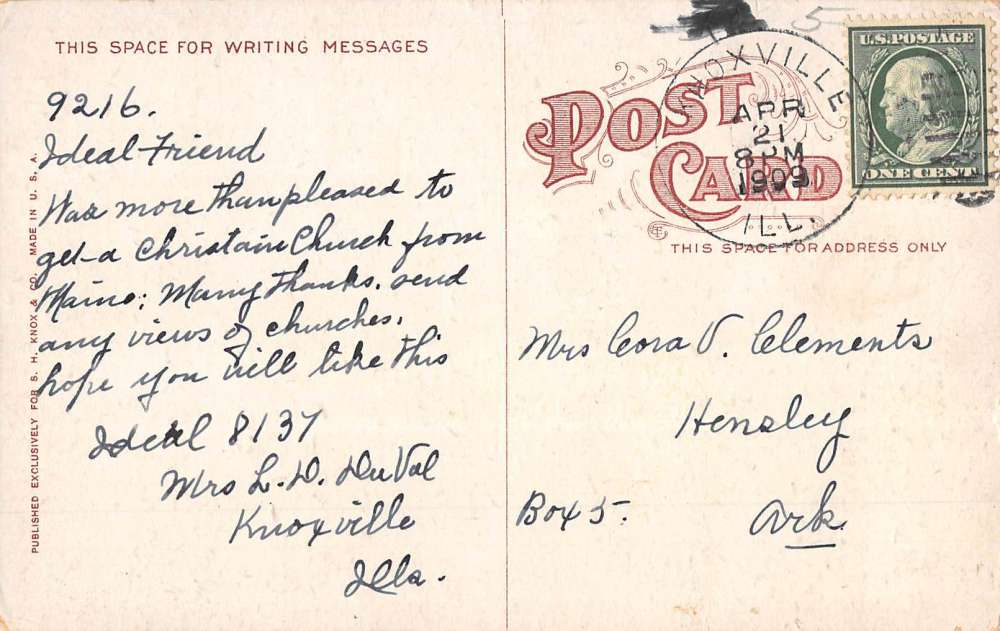 THIS SPACE FOR WRITING MESSAGES
9216.
Ideal Friend
Was more than pleased to
get a Christain Church from
Maine; Many thanks, send
any views of churches,
hope you will like this
Ideal 8137
Mrs L. D. DuVal
Knoxville
Ills.
PUBLISHED EXCLUSIVELY FOR S. H. KNOX & CO. MADE IN U. S. A.
5
KNOXVILLE
APR
21
8 PM
1909
ILL.
U.S. POSTAGE
ONE CENT
POST
CARD
THIS SPACE FOR ADDRESS ONLY
Mrs Cora V. Clements
Hensley
Box 5.
Ark.